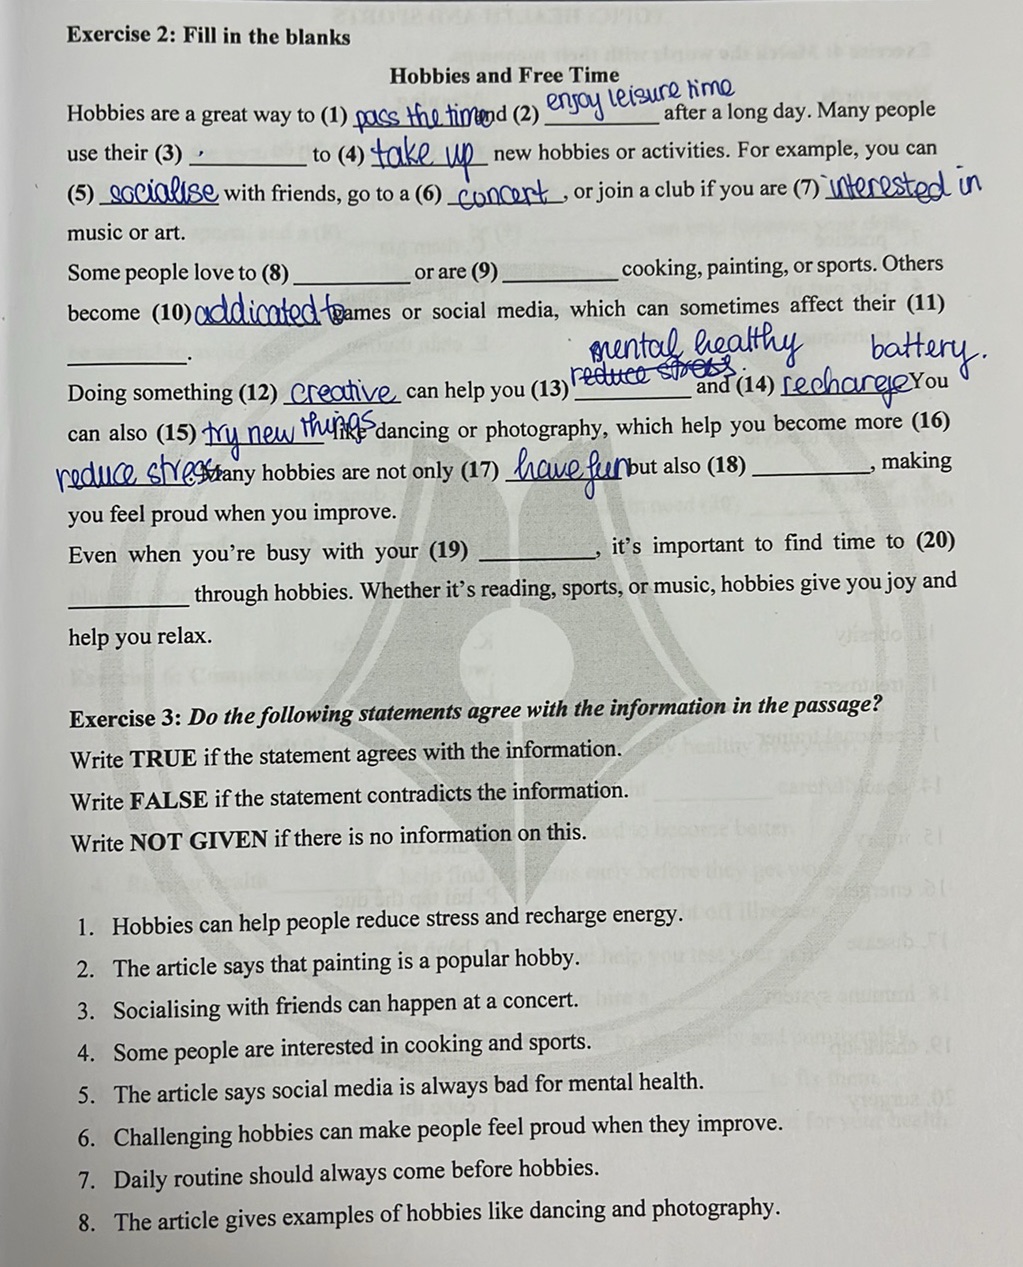 Exercise 2: Fill in the blanks
Hobbies and Free Time
enjoy leisure time
Hobbies are a great way to (1) pass the time and (2) __________ after a long day. Many people
use their (3) __________ to (4) take up new hobbies or activities. For example, you can
(5) socialise with friends, go to a (6) concert, or join a club if you are (7) interested in
music or art.
Some people love to (8) __________ or are (9) __________ cooking, painting, or sports. Others
become (10) addicated to games or social media, which can sometimes affect their (11)
__________.
mental healthy battery.
reduce stress
Doing something (12) creative can help you (13) __________ and (14) recharge You
can also (15) try new things like dancing or photography, which help you become more (16)
reduce stress Many hobbies are not only (17) have fun but also (18) __________, making
you feel proud when you improve.
Even when you're busy with your (19) __________, it's important to find time to (20)
__________ through hobbies. Whether it's reading, sports, or music, hobbies give you joy and
help you relax.
Exercise 3: Do the following statements agree with the information in the passage?
Write TRUE if the statement agrees with the information.
Write FALSE if the statement contradicts the information.
Write NOT GIVEN if there is no information on this.
1. Hobbies can help people reduce stress and recharge energy.
2. The article says that painting is a popular hobby.
3. Socialising with friends can happen at a concert.
4. Some people are interested in cooking and sports.
5. The article says social media is always bad for mental health.
6. Challenging hobbies can make people feel proud when they improve.
7. Daily routine should always come before hobbies.
8. The article gives examples of hobbies like dancing and photography.